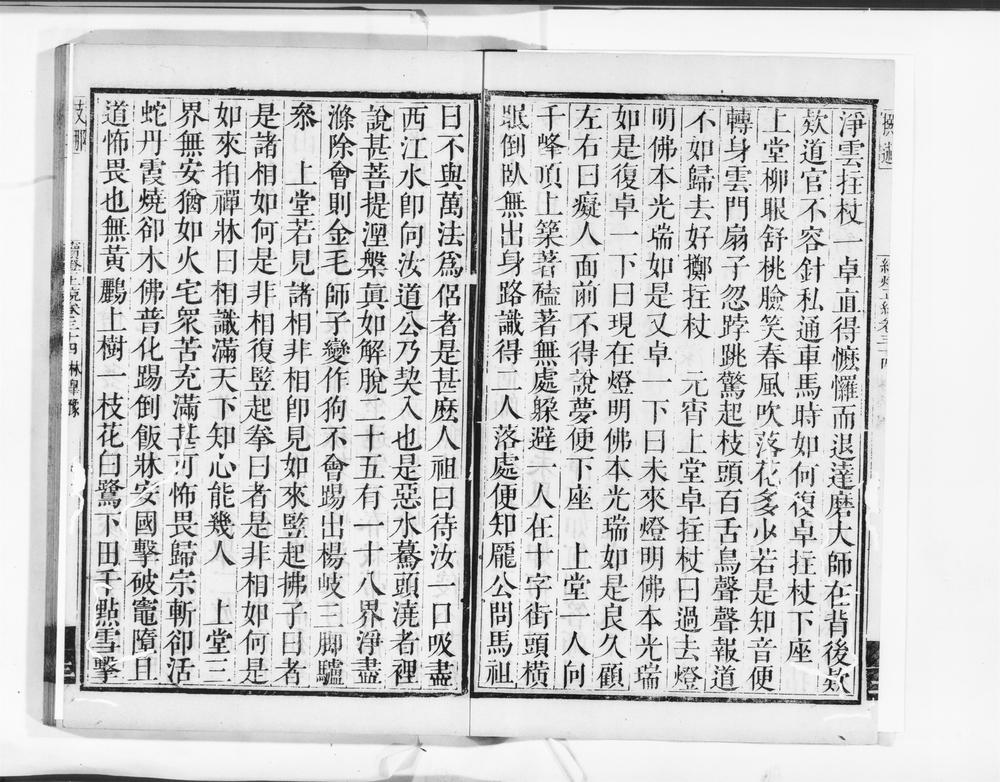 淨雲拄杖一卓直得懡㦬而退達磨大師在背後欸
欸道官不容針私通車馬時如何復卓拄杖下座
上堂柳眼舒桃臉笑春風吹落花多少若是知音便
轉身雲門扇子忽𨁝跳驚起枝頭百舌鳥聲聲報道
不如歸去好擲拄杖　元宵上堂卓拄杖曰過去燈
明佛本光瑞如是又卓一下曰未來燈明佛本光瑞
如是復卓一下曰現在燈明佛本光瑞如是良久顧
左右曰癡人面前不得說夢便下座　上堂一人向
千峰頂上築著磕著無處躱避一人在十字街頭橫
眠倒臥無出身路識得二人落處便知龐公問馬祖
曰不與萬法爲侶者是甚麽人祖曰待汝一口吸盡
西江水卽向汝道公乃契入也是惡水驀頭澆者裡
說甚菩提湼槃眞如解脫二十五有一十八界淨盡
滌除會則金毛師子變作狗不會踢出楊岐三脚驢
叅　上堂若見諸相非相卽見如來竪起拂子曰者
是諸相如何是非相復竪起拳曰者是非相如何是
如來拍禪牀曰相識滿天下知心能幾人　上堂三
界無安猶如火宅衆苦充滿甚可怖畏歸宗斬卻活
蛇丹霞燒卻木佛普化踢倒飯牀安國擊破竈墮且
道怖畏也無黃鸝上樹一枝花白鷺下田千點雪擊